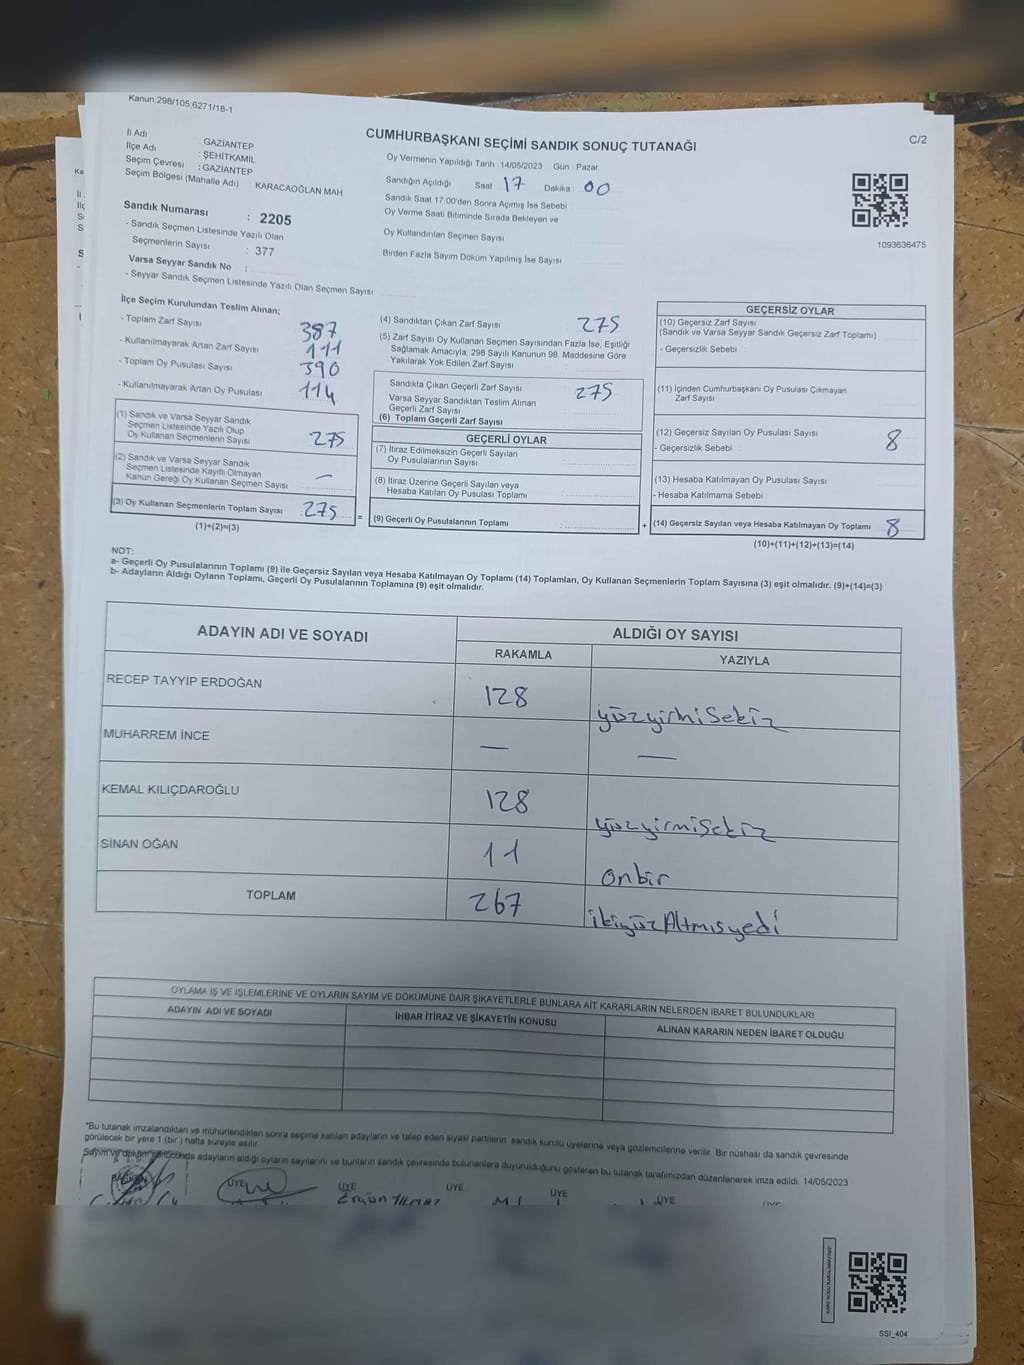 Kanun.298/105,6271/18-1
CUMHURBAŞKANI SEÇİMİ SANDIK SONUÇ TUTANAĞI
C/2
İl Adı : GAZİANTEP
İlçe Adı : ŞEHİTKAMİL
Seçim Çevresi : GAZİANTEP
Seçim Bölgesi (Mahalle Adı) KARACAOĞLAN MAH
Sandık Numarası : 2205
- Sandık Seçmen Listesinde Yazılı Olan
Seçmenlerin Sayısı : 377
Varsa Seyyar Sandık No :
- Seyyar Sandık Seçmen Listesinde Yazılı Olan Seçmen Sayısı:
Oy Vermenin Yapıldığı Tarih : 14/05/2023 Gün : Pazar
Sandığın Açıldığı Saat 17 Dakika 00
Sandık Saat 17:00'den Sonra Açımış İse Sebebi
Oy Verme Saati Bitiminde Sırada Bekleyen ve
Oy Kullandırılan Seçmen Sayısı
Birden Fazla Sayım Döküm Yapılmış İse Sayısı
1093636475
İlçe Seçim Kurulundan Teslim Alınan;
- Toplam Zarf Sayısı 387
- Kullanılmayarak Artan Zarf Sayısı 111
- Toplam Oy Pusulası Sayısı 390
- Kullanılmayarak Artan Oy Pusulası 114
(1) Sandık ve Varsa Seyyar Sandık
Seçmen Listesinde Yazılı Olup
Oy Kullanan Seçmenlerin Sayısı 275
(2) Sandık ve Varsa Seyyar Sandık
Seçmen Listesinde Kayıtlı Olmayan
Kanun Gereği Oy Kullanan Seçmen Sayısı —
(3) Oy Kullanan Seçmenlerin Toplam Sayısı 275
(1)+(2)=(3)
(4) Sandıktan Çıkan Zarf Sayısı 275
(5) Zarf Sayısı Oy Kullanan Seçmen Sayısından Fazla İse, Eşitliği
Sağlamak Amacıyla, 298 Sayılı Kanunun 98. Maddesine Göre
Yakılarak Yok Edilen Zarf Sayısı
Sandıkta Çıkan Geçerli Zarf Sayısı 275
Varsa Seyyar Sandıktan Teslim Alınan
Geçerli Zarf Sayısı
(6) Toplam Geçerli Zarf Sayısı
GEÇERLİ OYLAR
(7) İtiraz Edilmeksizin Geçerli Sayılan
Oy Pusulalarının Sayısı
(8) İtiraz Üzerine Geçerli Sayılan veya
Hesaba Katılan Oy Pusulası Toplamı
= (9) Geçerli Oy Pusulalarının Toplamı :
GEÇERSİZ OYLAR
(10) Geçersiz Zarf Sayısı
(Sandık ve Varsa Seyyar Sandık Geçersiz Zarf Toplamı)
- Geçersizlik Sebebi
(11) İçinden Cumhurbaşkanı Oy Pusulası Çıkmayan
Zarf Sayısı
(12) Geçersiz Sayılan Oy Pusulası Sayısı 8
- Geçersizlik Sebebi
(13) Hesaba Katılmayan Oy Pusulası Sayısı
- Hesaba Katılmama Sebebi
+ (14) Geçersiz Sayılan veya Hesaba Katılmayan Oy Toplamı 8
(10)+(11)+(12)+(13)=(14)
NOT:
a- Geçerli Oy Pusulalarının Toplamı (9) ile Geçersiz Sayılan veya Hesaba Katılmayan Oy Toplamı (14) Toplamları, Oy Kullanan Seçmenlerin Toplam Sayısına (3) eşit olmalıdır. (9)+(14)=(3)
b- Adayların Aldığı Oyların Toplamı, Geçerli Oy Pusulalarının Toplamına (9) eşit olmalıdır.
ADAYIN ADI VE SOYADI ALDIĞI OY SAYISI
RAKAMLA YAZIYLA
RECEP TAYYİP ERDOĞAN 128 yüzyirmiSekiz
MUHARREM İNCE — —
KEMAL KILIÇDAROĞLU 128 yüzyirmiSekiz
SİNAN OĞAN 11 onbir
TOPLAM 267 ikiyüzAltmışyedi
OYLAMA İŞ VE İŞLEMLERİNE VE OYLARIN SAYIM VE DÖKÜMÜNE DAİR ŞİKAYETLERLE BUNLARA AİT KARARLARIN NELERDEN İBARET BULUNDUKLARI
ADAYIN ADI VE SOYADI İHBAR İTİRAZ VE ŞİKAYETİN KONUSU ALINAN KARARIN NEDEN İBARET OLDUĞU
"Bu tutanak imzalandıktan ve mühürlendikten sonra seçime katılan adayların ve talep eden siyasi partilerin sandık kurulu üyelerine veya gözlemcilerine verilir. Bir nüshası da sandık çevresinde
görülecek bir yere 1 (bir ) hafta süreyle asılır.
Sayım ve döküm sonucunda adayların aldığı oyların sayılarını ve bunların sandık çevresinde bulunanlara duyurulduğunu gösteren bu tutanak tarafımızdan düzenlenerek imza edildi. 14/05/2023
BAŞKAN ÜYE ÜYE ÜYE ÜYE ÜYE ÜYE
Ergün YILMAZ
SSI_404